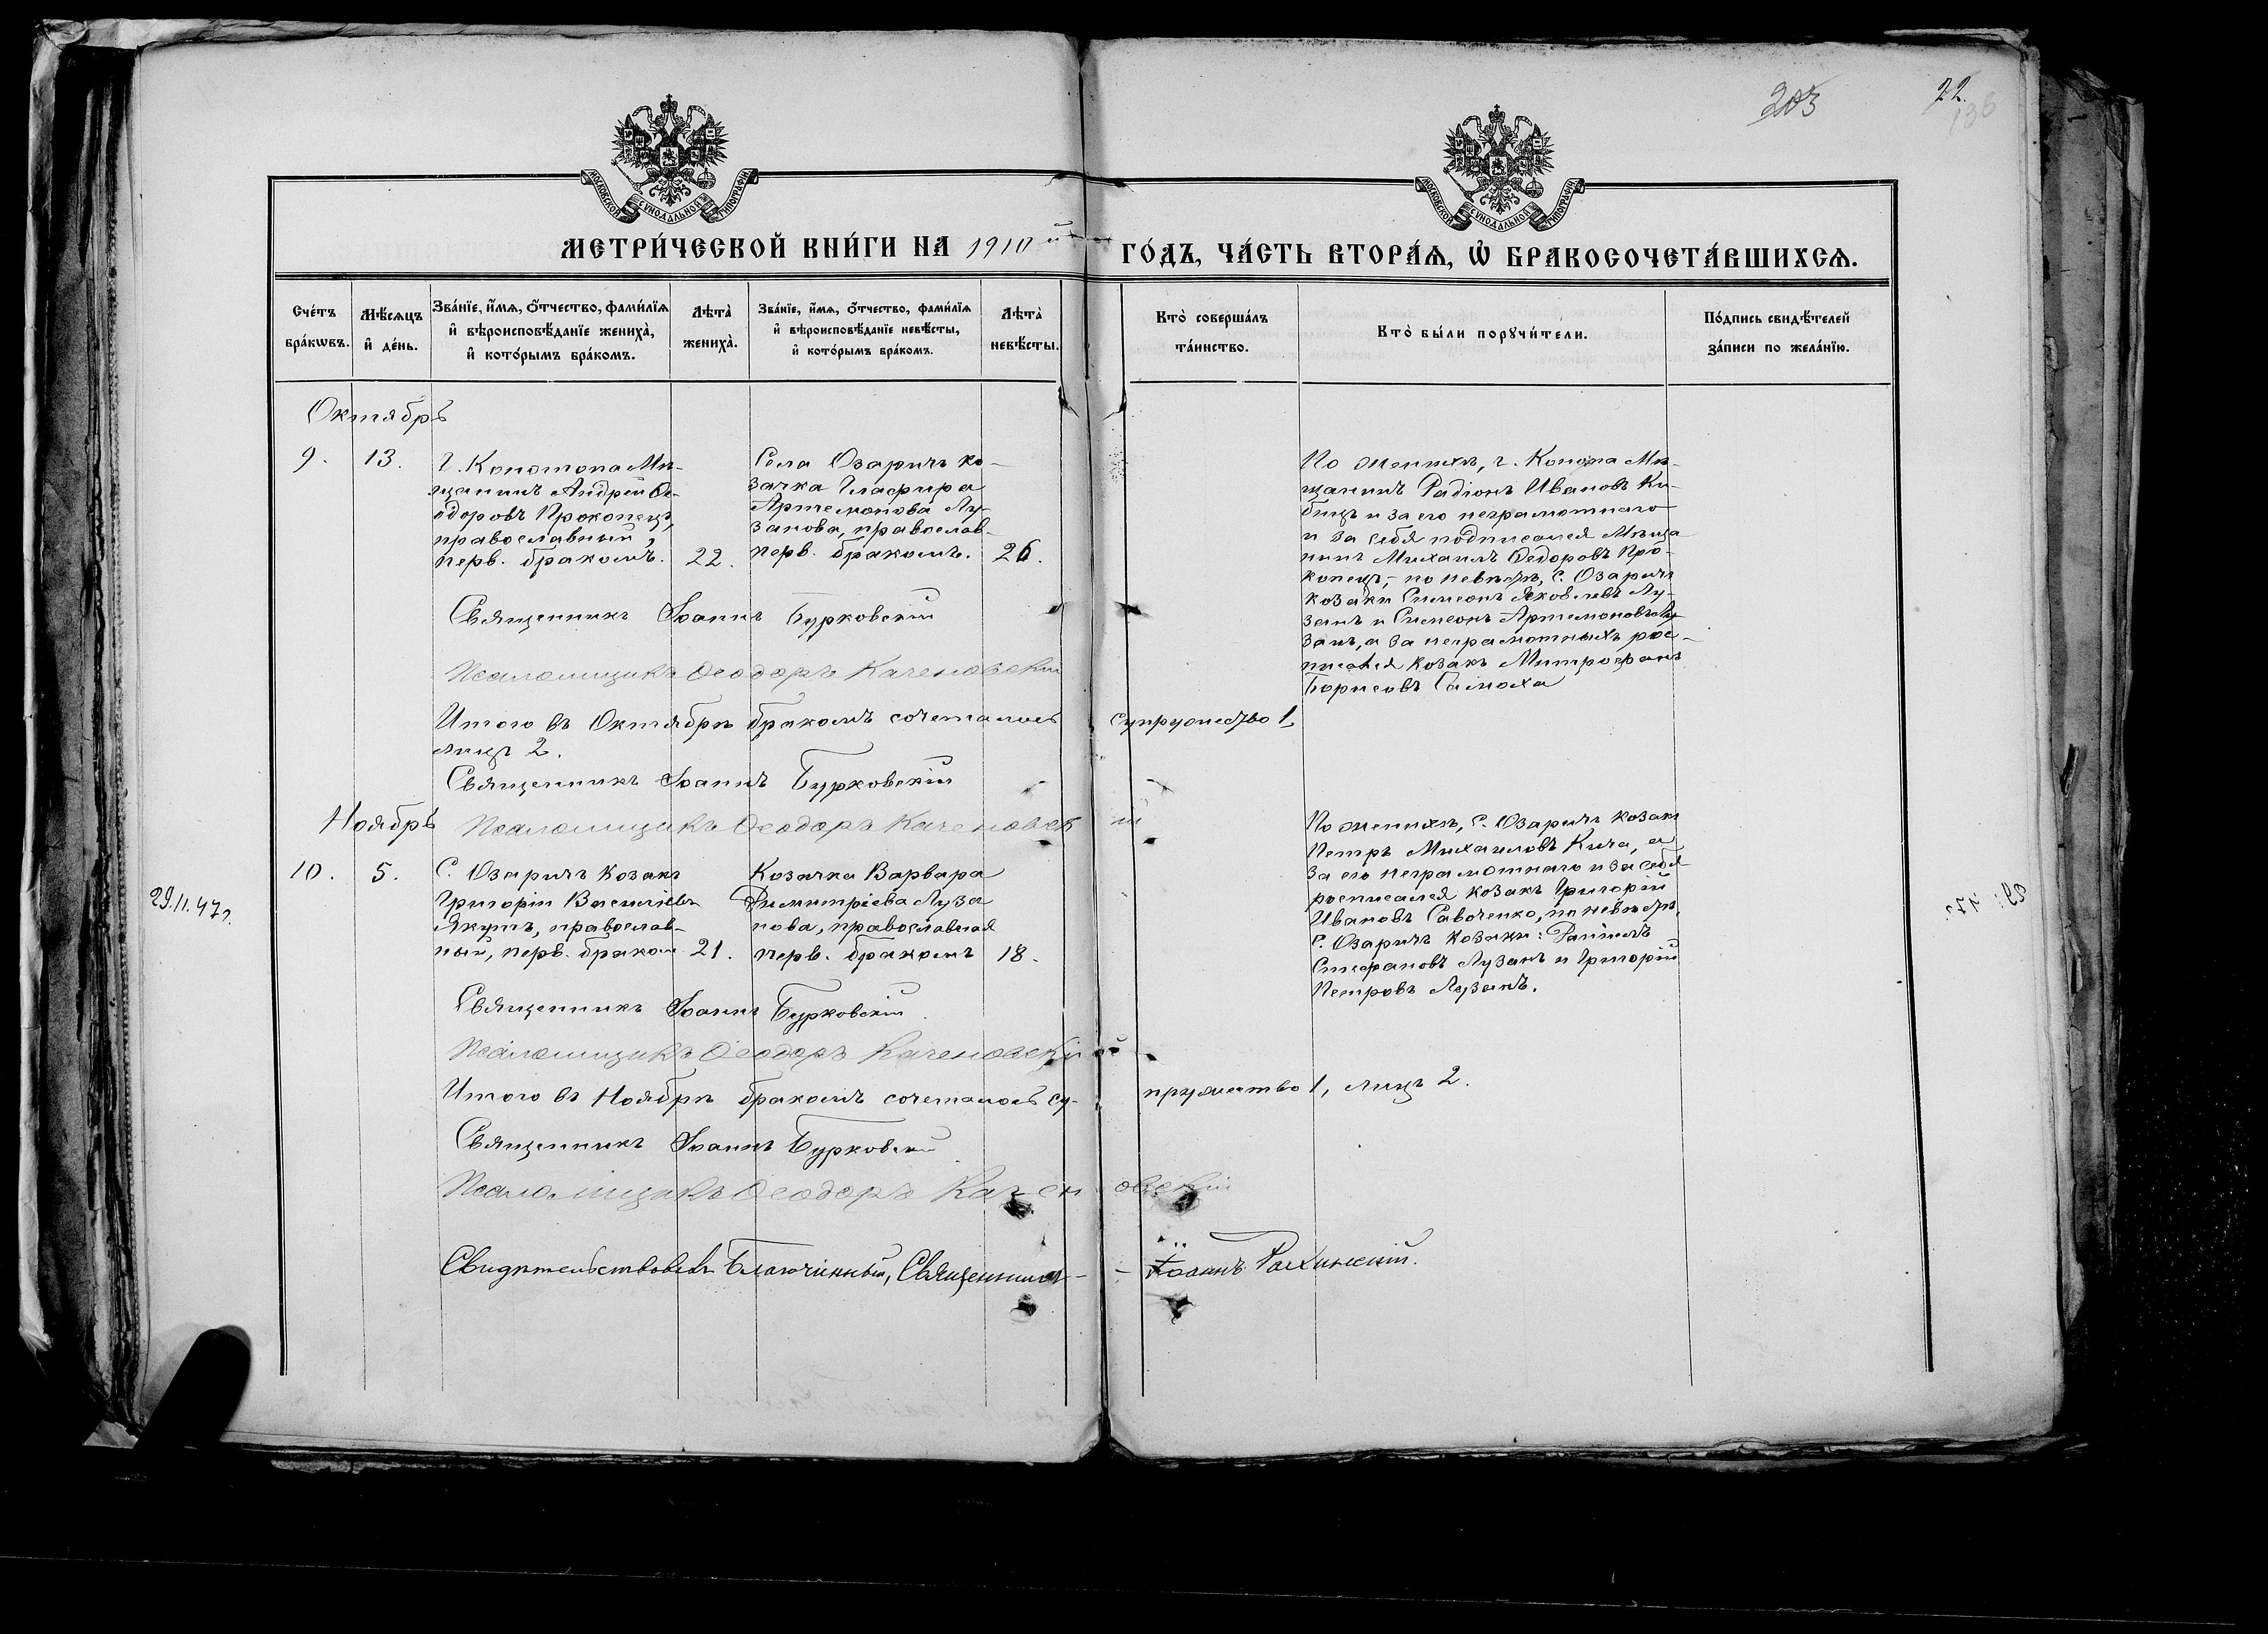 203
22
136
МОСКОВСКОЙ СѴНОДАЛЬНОЙ ТИПОГРАФІИ
МОСКОВСКОЙ СѴНОДАЛЬНОЙ ТИПОГРАФІИ
МЕТРИ́ЧЕСКОЙ КНИ́ГИ НА 1910й ГО́ДЪ, ЧА́СТЬ ВТОРА́Ѧ, Ѡ҆ БРАКОСОЧЕТА́ВШИХСѦ.
Сче́тъ бра́кѡвъ.
Мѣ́сѧцъ и҆ де́нь.
Зва́нїе, и҆́мѧ, ѻ҆́тчество, фами́лїѧ и҆ вѣроисповѣ́данїе жениха̀, и҆ кото́рымъ бра́комъ.
Лѣта̀ жениха̀.
Зва́нїе, и҆́мѧ, ѻ҆́тчество, фами́лїѧ и҆ вѣроисповѣ́данїе невѣ́сты, и҆ кото́рымъ бра́комъ.
Лѣта̀ невѣ́сты.
Кто̀ соверша́лъ та́инство.
Кто̀ бы́ли порꙋчи́тели.
По́дпись свидѣ́телей за́писи по жела́нїю.
Октябрь
9.
13.
Г. Конотопа Мѣ-
щанинъ Андрей Ѳе-
одоровъ Прокопецъ,
православный,
перв. бракомъ.
22.
Села Озаричъ ко-
зачка Глафира
Артемонова Лу-
занова, православ.
перв. бракомъ.
26.
По женихѣ, г. Конопа Мѣ-
щанинъ Радіонъ Ивановъ Ки-
бицъ и за его неграмотнаго
и за себя подписался Мѣща
нинъ Михаилъ Ѳедоровъ Про-
копецъ, по невѣстѣ, С. Озаричъ
козаки Симеонъ Яковлевъ Лу-
занъ и Симеонъ Артемоновъ Лу
занъ, а за неграмотныхъ рос-
писался козакъ Митрофанъ
Борисовъ Гамоха
Священникъ Іоаннъ Бурковскій
Псаломщикъ Ѳеодоръ Каченовскій
Итого въ Октябрѣ бракомъ сочеталось супружество 1,
лицъ 2.
Священникъ Іоаннъ Бурковскій
Ноябрь
Псаломщикъ Ѳеодоръ Каченовскій
10.
5.
29.11.47г.
С. Озаричъ козакъ
Григорій Васильевъ
Якутъ, православ-
ный, перв. браком
21.
Козачка Варвара
Димитріева Луза
нова, православная
перв. бракомъ
18.
По женихѣ, С. Озаричъ козакъ
Петръ Михаиловъ Кича, а
за его неграмотнаго и за себя
росписался козакъ Григорій
Ивановъ Савоченко, по невѣстѣ,
С. Озаричъ козаки:
Стефановъ Лузанъ и Григорій
Петровъ Лузанъ.
Священникъ Іоаннъ Бурковскій
Псаломщикъ Ѳеодоръ Каченовскій
Итого въ Ноябрѣ бракомъ сочеталось су-
пружество 1, лицъ 2.
Священникъ Іоаннъ Бурковскій
Псаломщикъ Ѳеодоръ Каченовскій
Свидѣтельствовалъ Благочинный, Священникъ Іоаннъ